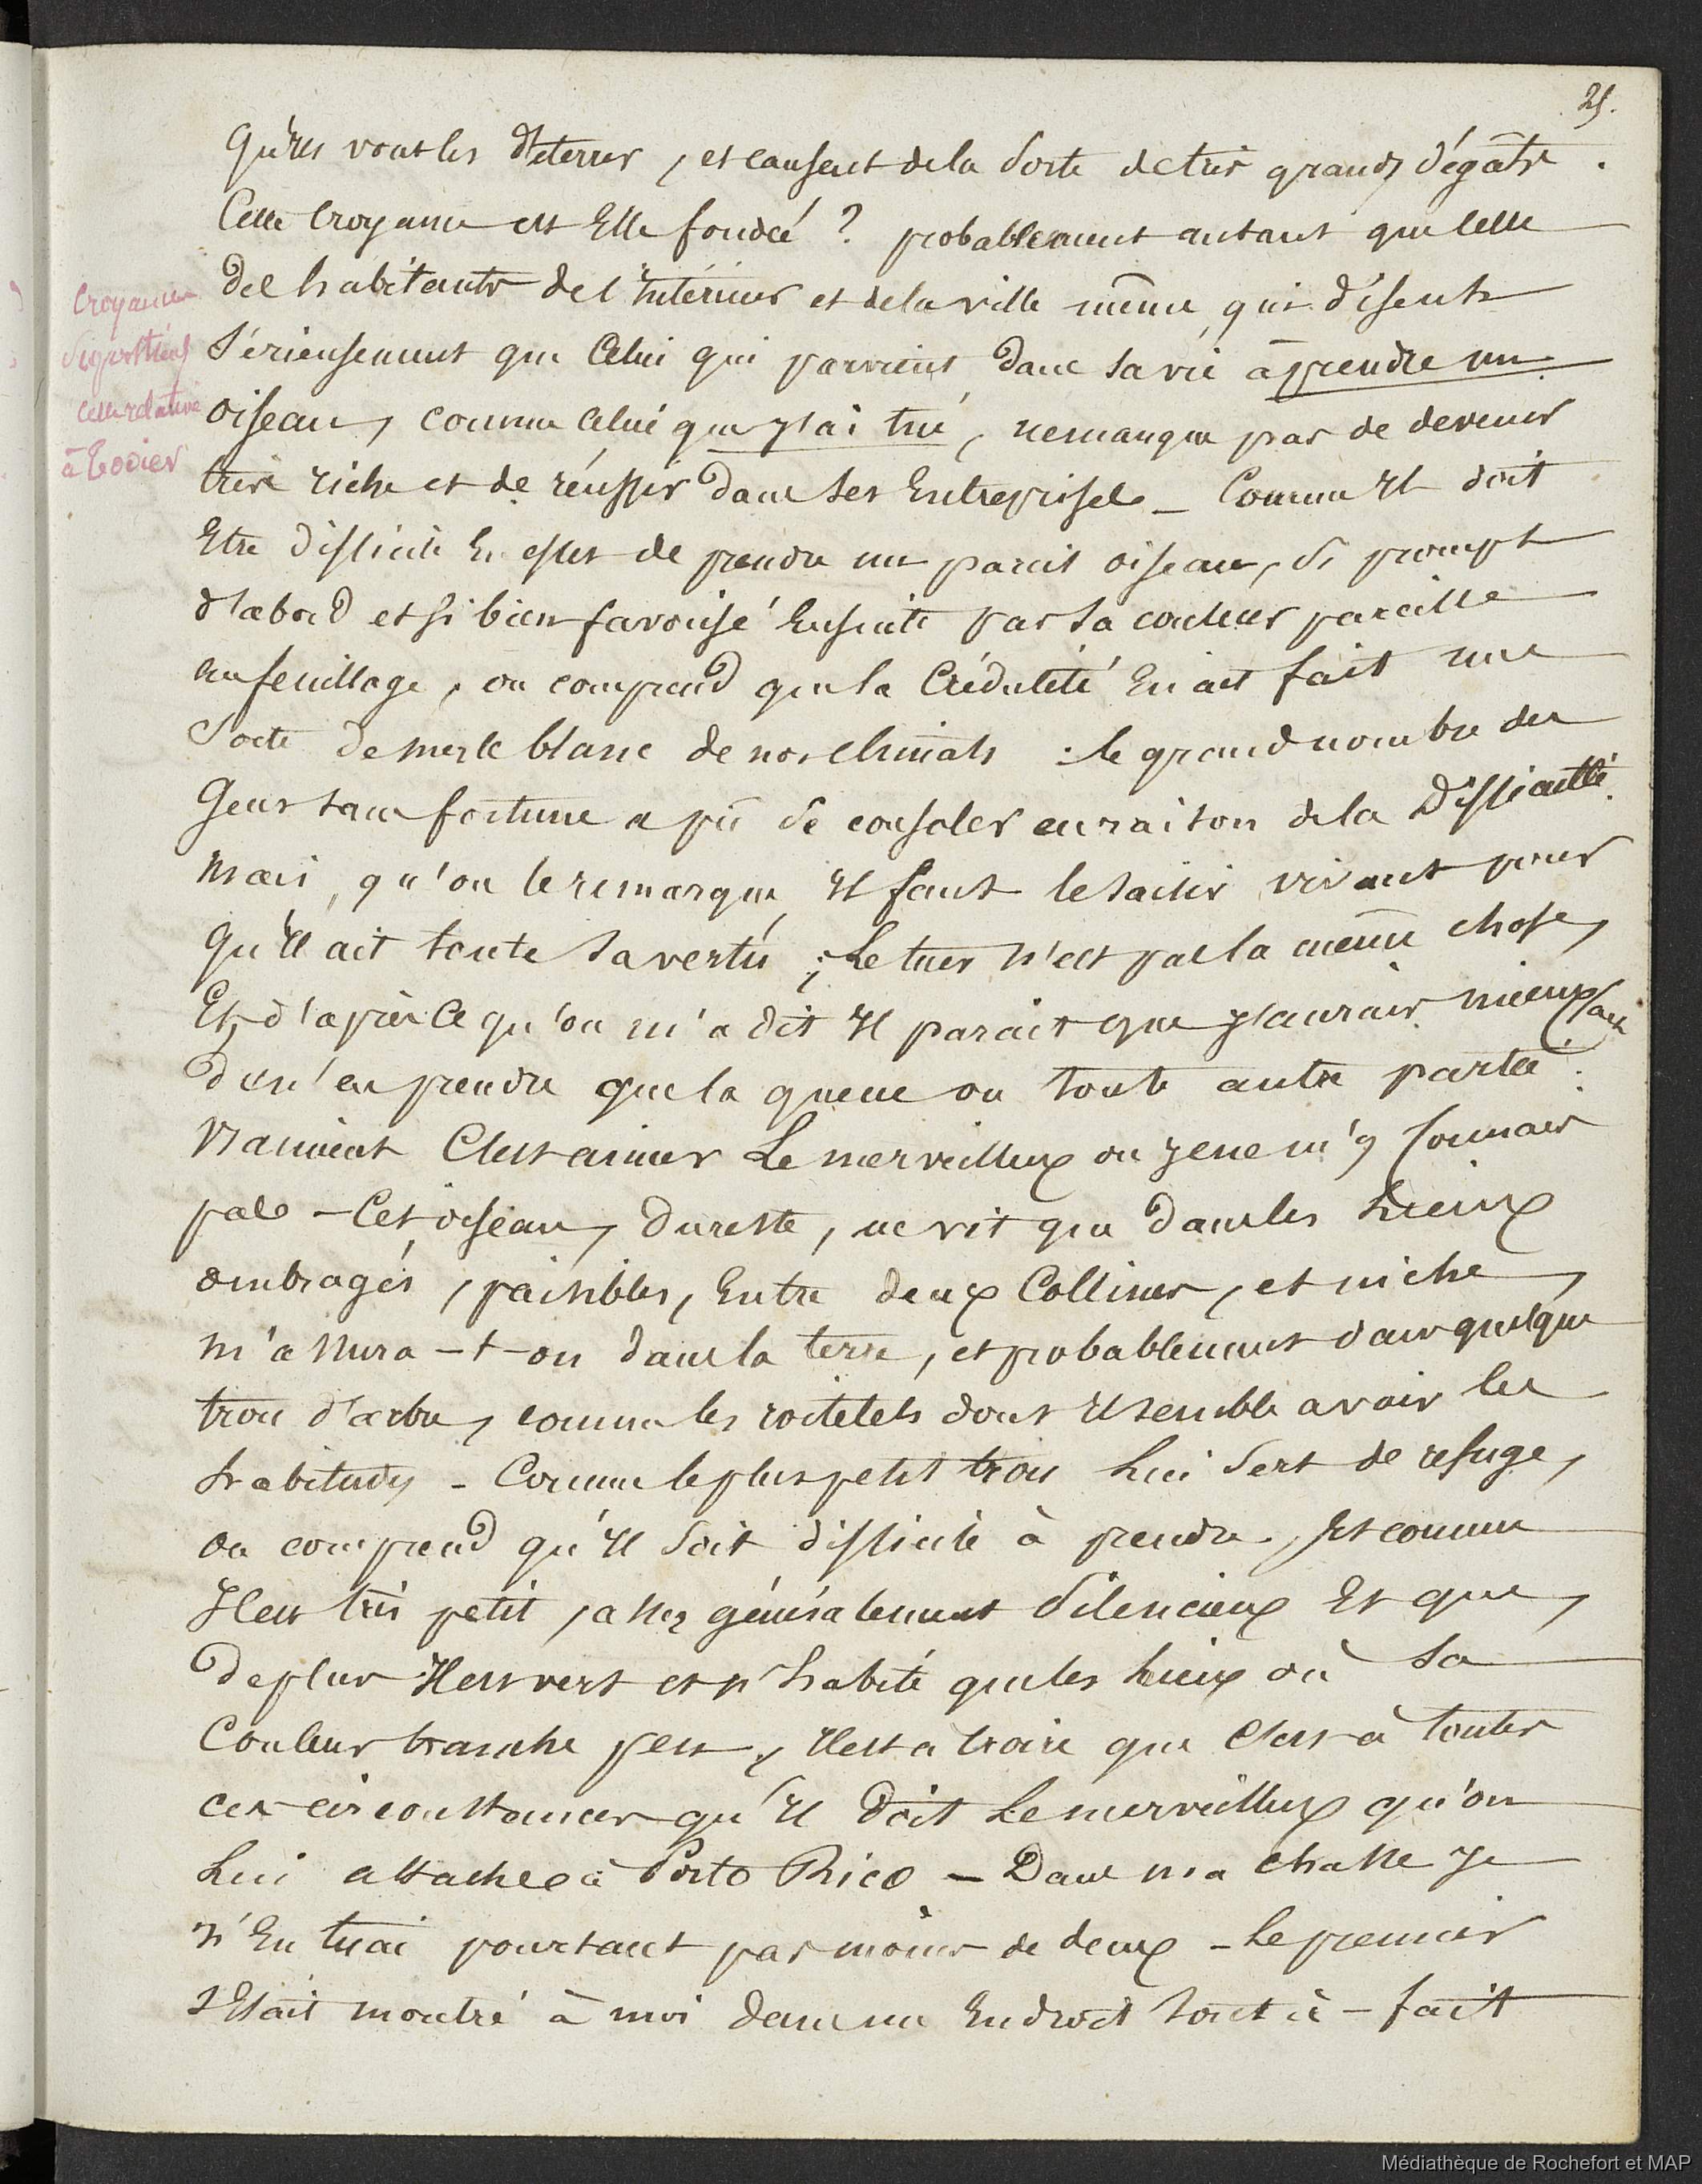 25.
qu'ils vont les déterrer, et causent de la sorte de très grands dégâts.
Cette croyance est Elle fondée ? probablement autant que celle
des habitants de l'Intérieur et de la ville même, qui disent
sérieusement que Celui qui parvient dans sa vie à prendre un
oiseau, comme celui que j'ai tué, ne manque pas de devenir
très riche et de réussir dans ses Entreprises _ Comme Il doit
Etre difficile En effet de prendre un pareil oiseau, si prompt
d'abord et si bien favorisé Ensuite par sa couleur pareille
au feuillage, on comprend que la Crédulité En ait fait une
Sorte de merle blanc de nos climats : le grand nombre des
Gens sans fortune a pu se consoler en raison de la Difficulté.
Mais, qu'on le remarque, Il faut le saisir vivant pour
qu'Il ait toute sa vertu ; Le tuer n'est pas la même chose,
Et d'après Ce qu'on m'a dit Il parait que j'aurais mieux fait
de n'en prendre que la queue ou toute autre partie.
Vraiment C'est aimer Le merveilleux ou je ne m'y connais
pas – Cet oiseau, du reste, ne vit que dans les Lieux
ombragés, paisibles, Entre deux Collines, et niche,
m'assura-t-on dans la terre, et probablement dans quelque
trou d'arbre, comme les roitelets dont Il semble avoir les
habitudes - Comme le plus petit trou Lui sert de refuge,
on comprend qu'Il soit difficile à prendre, Et comme
Il est très petit, assez généralement Silencieux Et que,
De plus Il est vert et n'habite que les Lieux où Sa
Couleur tranche peu, Il est à croire que C'est à toutes
ces circonstances qu'Il doit Le merveilleux qu'on
Lui attache à Porto Rico – Dans ma chasse je
n'En tuai pourtant pas moins de deux - Le premier
s'Etait montré à moi dans un Endroit tout à-fait
Croyances
superstitieuses
celle relative
à Todier
Médiathèque de Rochefort et MAP